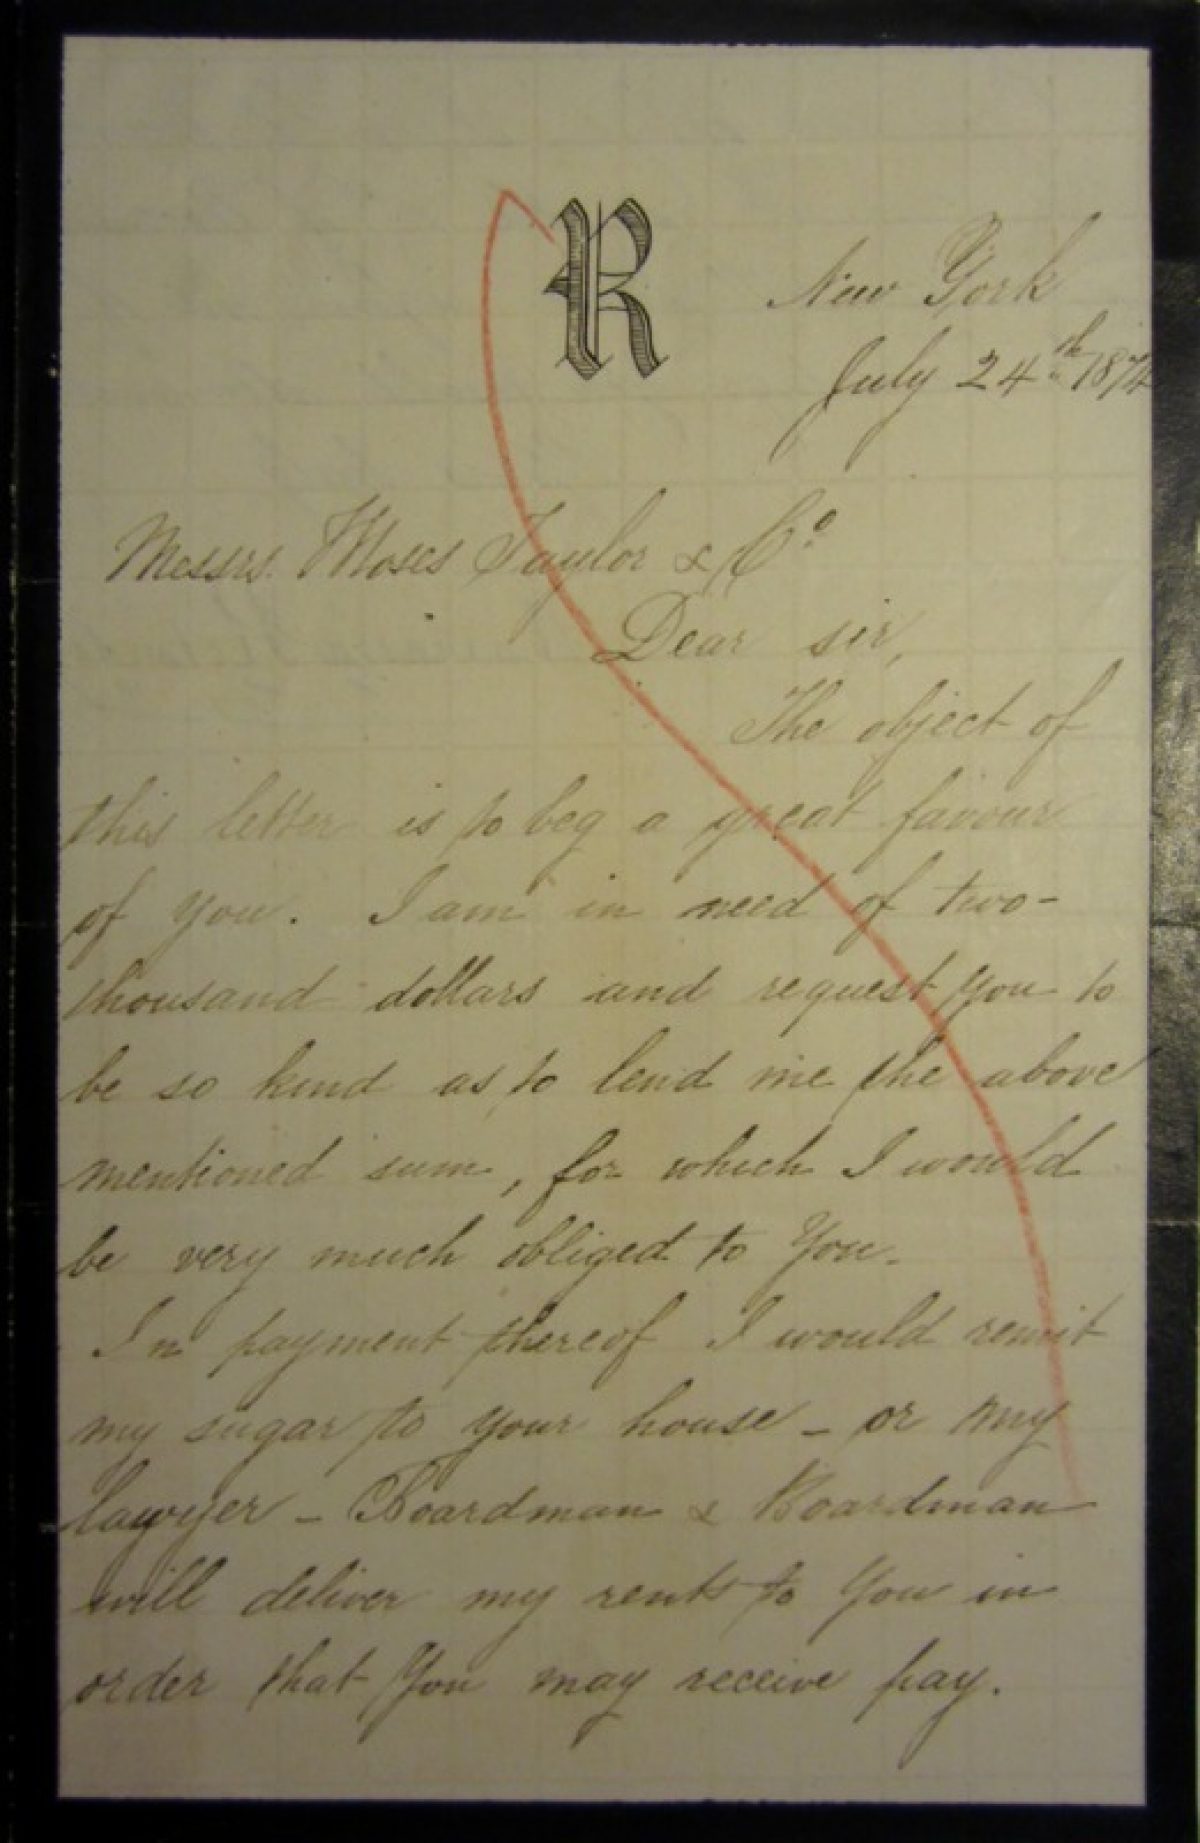 R
New York
July 24th 1874
Messrs. Moses Taylor & Co.
Dear sir,
The object of
this letter is to beg a great favour
of you. I am in need of two-
thousand dollars and request you to
be so kind as to lend me the above
mentioned sum, for which I would
be very much obliged to You.
In payment thereof I would remit
my sugar to your house - or my
lawyer - Boardman & Boardman
will deliver my rents to You in
order that You may receive pay.